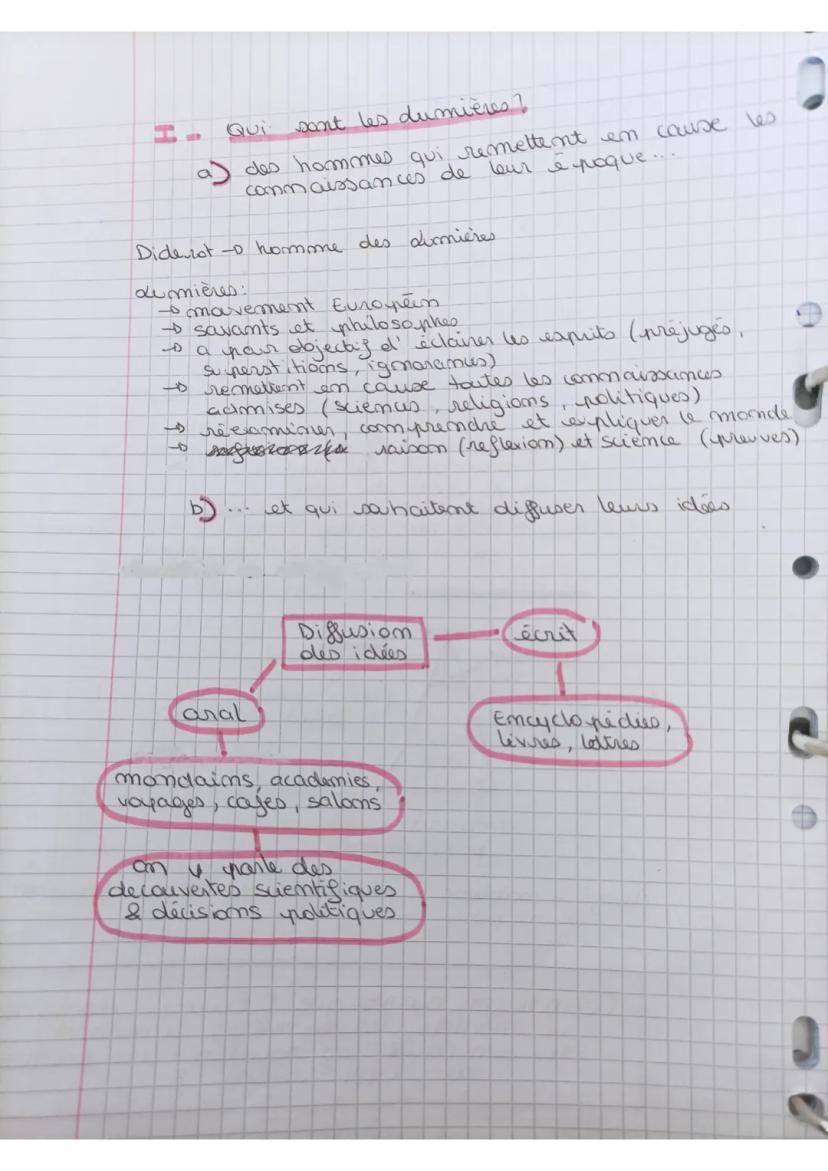 I - Qui sont les Lumières?
a) des hommes qui remettent en cause les
connaissances de leur époque...
Diderot → homme des Lumières
Lumières:
→ mouvement Européen
→ savants et philosophes
→ a pour objectif d'éclairer les esprits (préjugés,
superstitions, ignorances)
→ remettent en cause toutes les connaissances
admises (sciences, religions, politiques)
→ réexaminer, comprendre et expliquer le monde
→ raison (reflexion) et science (preuves)
b) ... et qui souhaitent diffuser leurs idées
Diffusion
des idées
écrit
oral
Encyclopédies,
livres, lettres
mondains, academies,
voyages, cafes, salons
On y parle des
decouvertes scientifiques
& décisions politiques